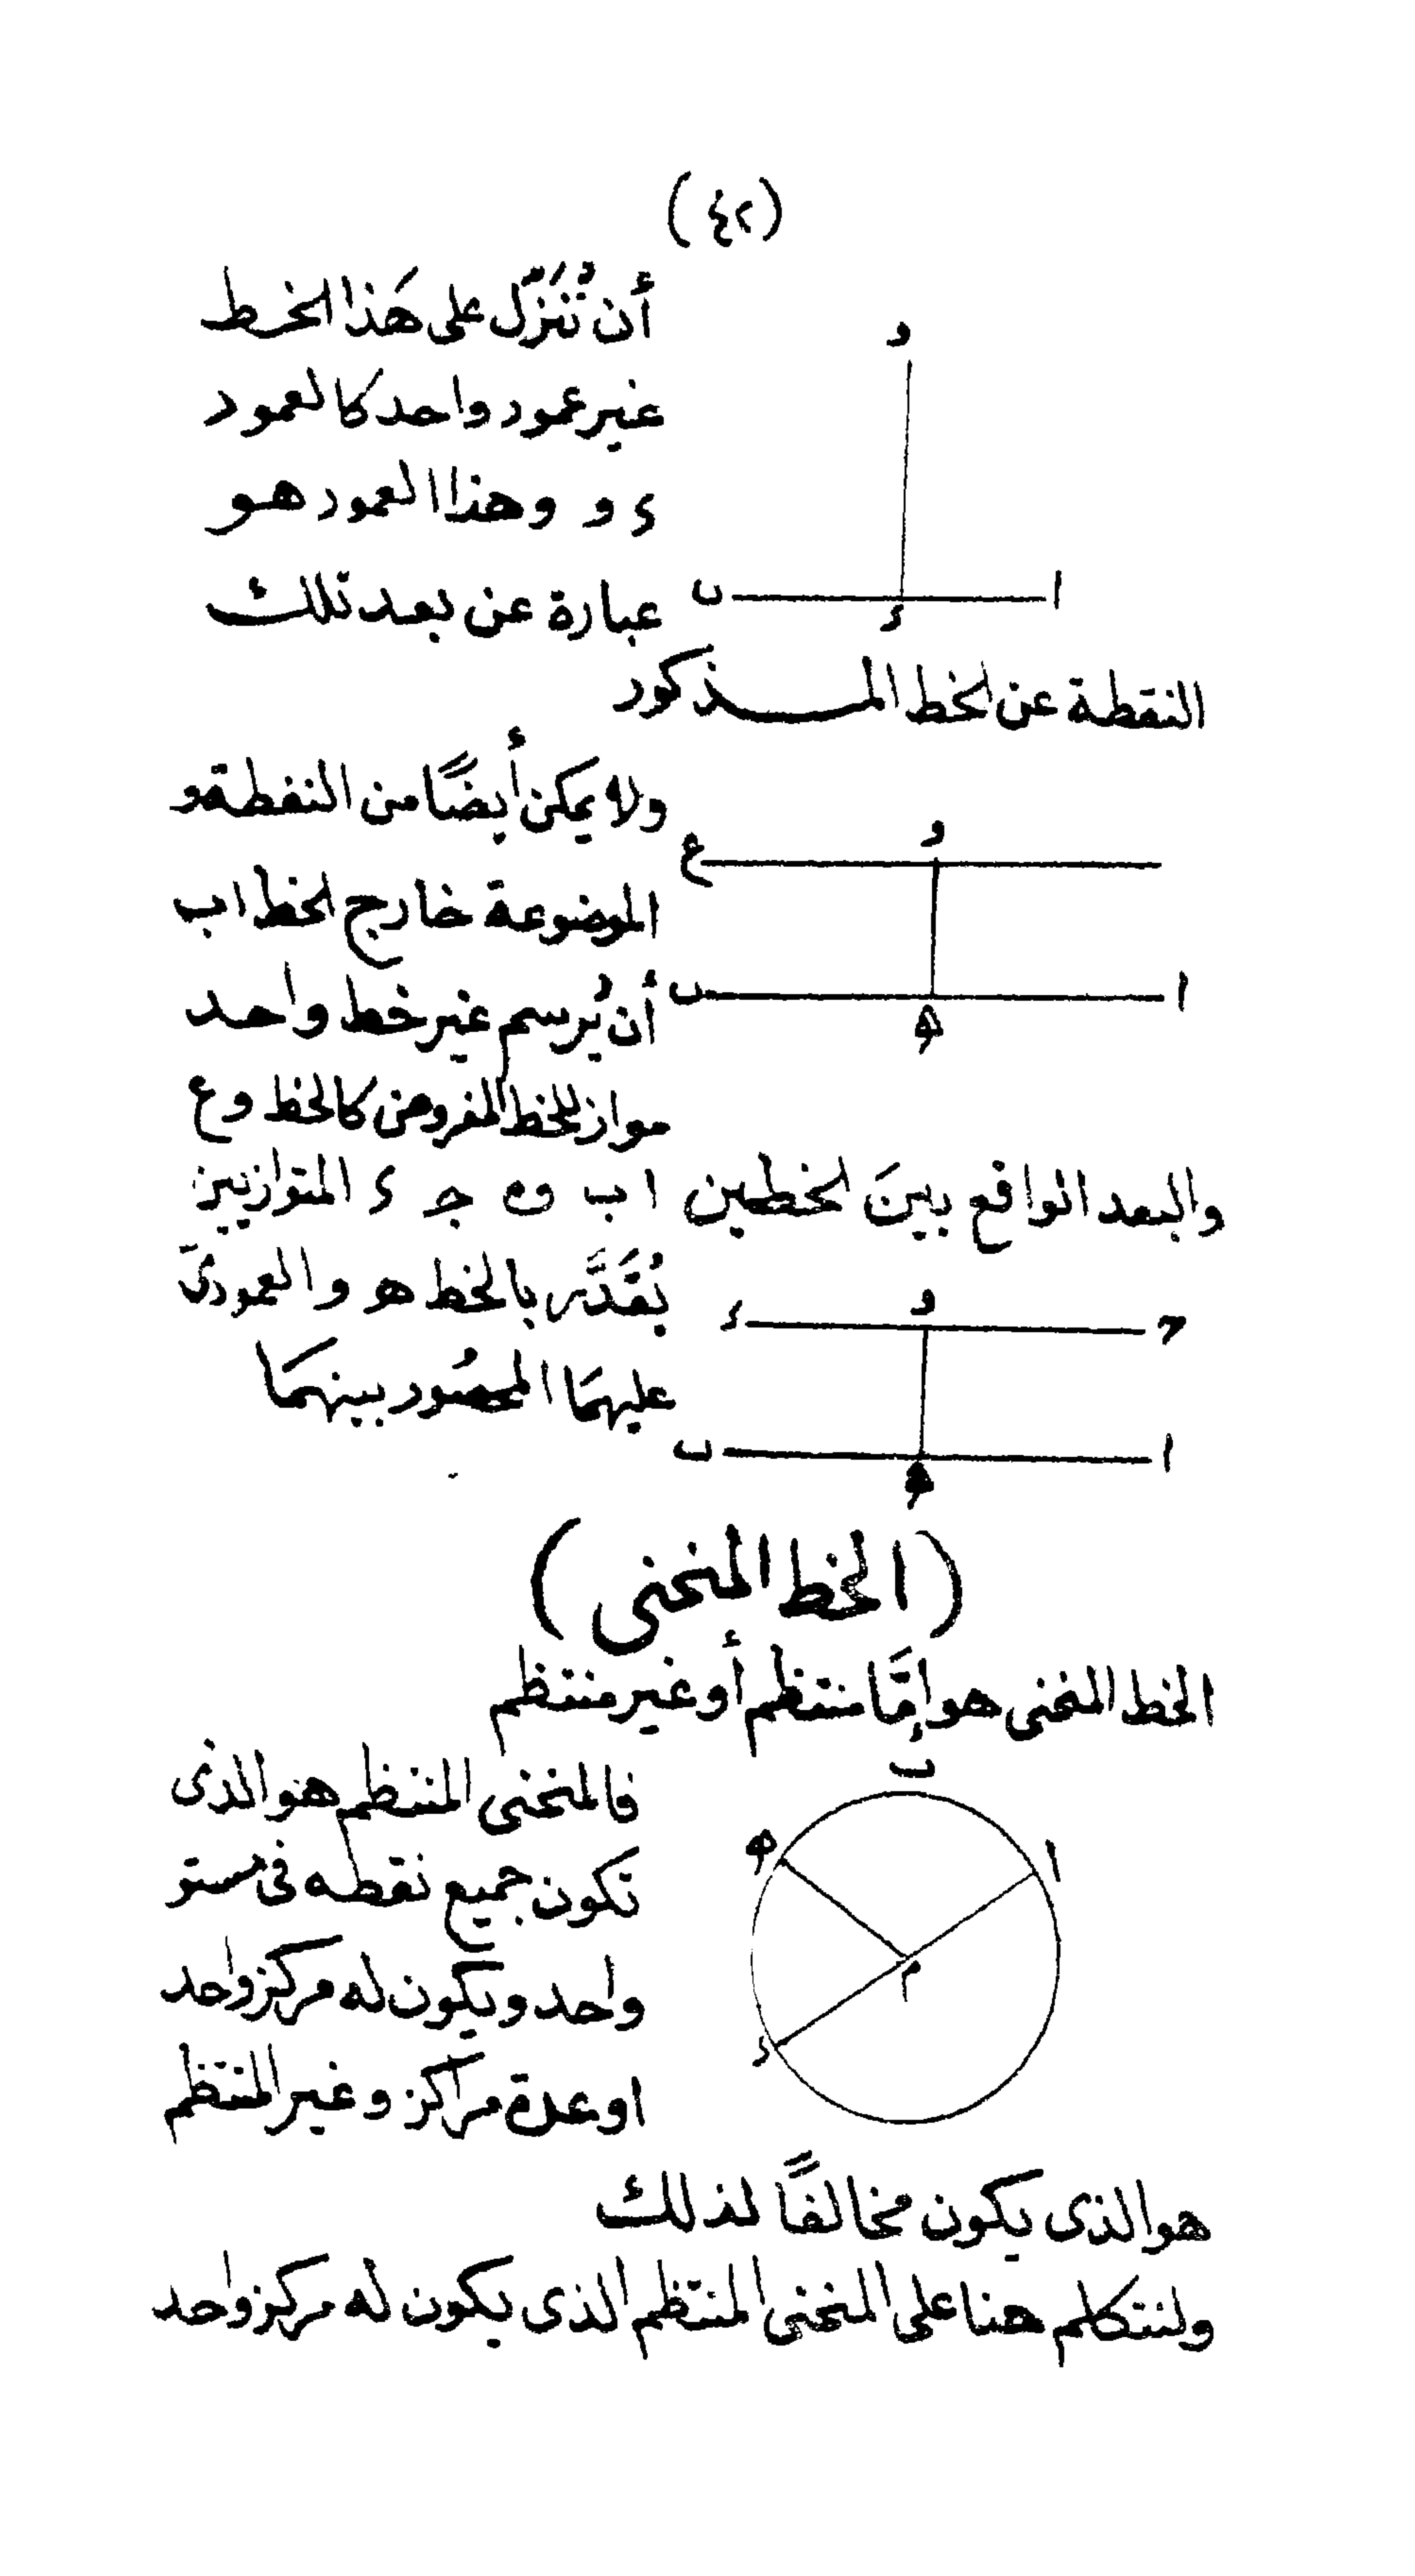 (٤٢)
أن تُنَزّل على هَذا الخط
و
غير عمود واحد كالعمود
ء و وهذا العمود هو
عبارة عن بعد تلك
ا ء ب
النقطة عن الخط المذكور
ولا يمكن أيضًا من النقطة و
و ع
الموضوعة خارج الخط اب
أن يُرسم غير خط واحد
ا ه ب
مواز للخط المفروض كالخط وع
والبعد الواقع بينَ الخطين ا ب و جـ ء المتوازيين
يُقَدَّر بالخط هـ و العمودىّ
حـ و ء
عليهمَا المحصُور بينهمَا
ا ه ب
(الخط المنحنى)
الخط المنحنى هو إمَّا منتظم أو غير منتظم
ب
فالمنحنى المنتظم هو الذى
ا ه
تكون جميع نقطه فى مستو
واحد ويكون له مركز واحد
م
ء
او عدة مراكز وغير المنتظم
هو الذى يكون مخالفًا لذلك
ولنتكلم هنا على المنحنى المنتظم الذى يكون له مركز واحد